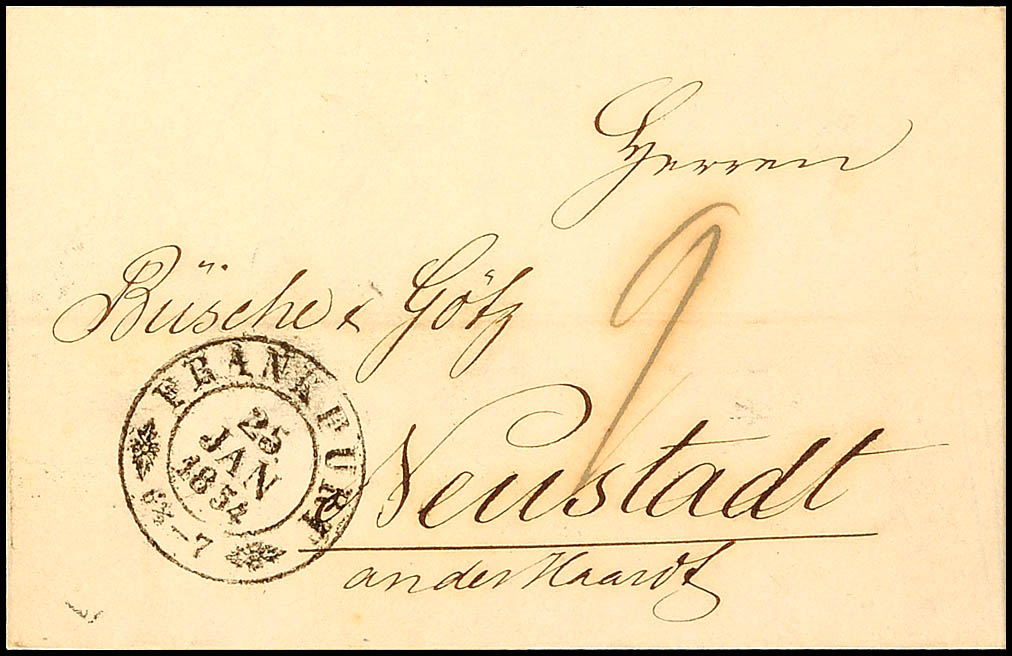 Herren
Büsche & Götz
9
Neustadt
an der Haardt
FRANKFURT
25
JAN
1854
6½-7